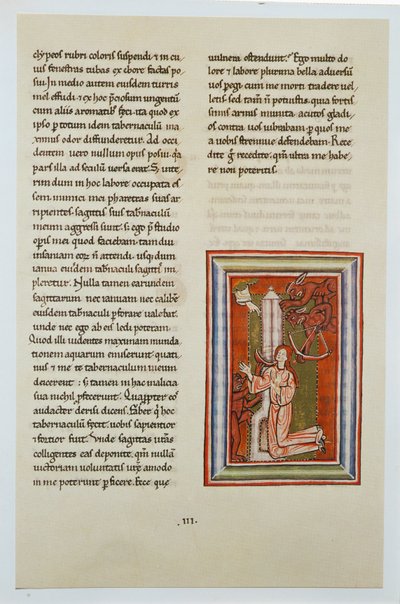 clypeos rubri coloris suspendi & in cu
ius fenestras tubas ex ebore factas po
sui. In medio autem eiusdem turris
mel effudi & ex hoc p̄ciosum unguentū
cum aliis aromatib; feci ita quod ex
ipso p totum idem tabernaculū ma
ximus odor diffunderetur. Ad occi
dentem uero nullum opus posui. q̄a
pars illa ad seculū uersa erat. &
rim dum in hoc labore occupata es
sem. inimici mei pharetras suas ar
ripientes. sagittis suis tabnaculū
meum aggressi sunt. s; ego p̄ studio
opis mei quod faciebam. tam diu
insaniam eoꝝ n̄ attendi. usq; dum
ianua eiusdem tabnaculi sagittis im
pleretur. Nulla tamen earundem
sagittarum nec ianuam nec calibē
eiusdem tabnaculi pforare ualebat.
unde nec ego ab eis ledi poteram.
Quod illi uidentes maximam inunda
tionem aquarum emiserunt. quati
nus & me & tabernaculum meum
deicerent: s; tamen in hac malicia
sua nichil pfecerunt. Quapter eos
audacter derisi dicens. Faber q̇ hoc
tabernaculū fecit. uobis sapientior
& fortior fuit. Unde sagittas urās
colligentes eas deponite. qm̄ nullā
uictoriam uoluntatis urę amodo
in me poterunt pficere. Ecce quę
uulnera ostendunt. Ego multo do
lore & labore plurima bella aduersū
uos pegi. cum me morti tradere uel
letis. sed tam̄ n̄ potuistis. quia fortis
simis armis munita acutos gladi
os contra uos uibrabam. p quos me
a uobis strennue defendebam. Rece
dite ḡ recedite. qm̄ ultra me habe
re non poteritis.
· III ·